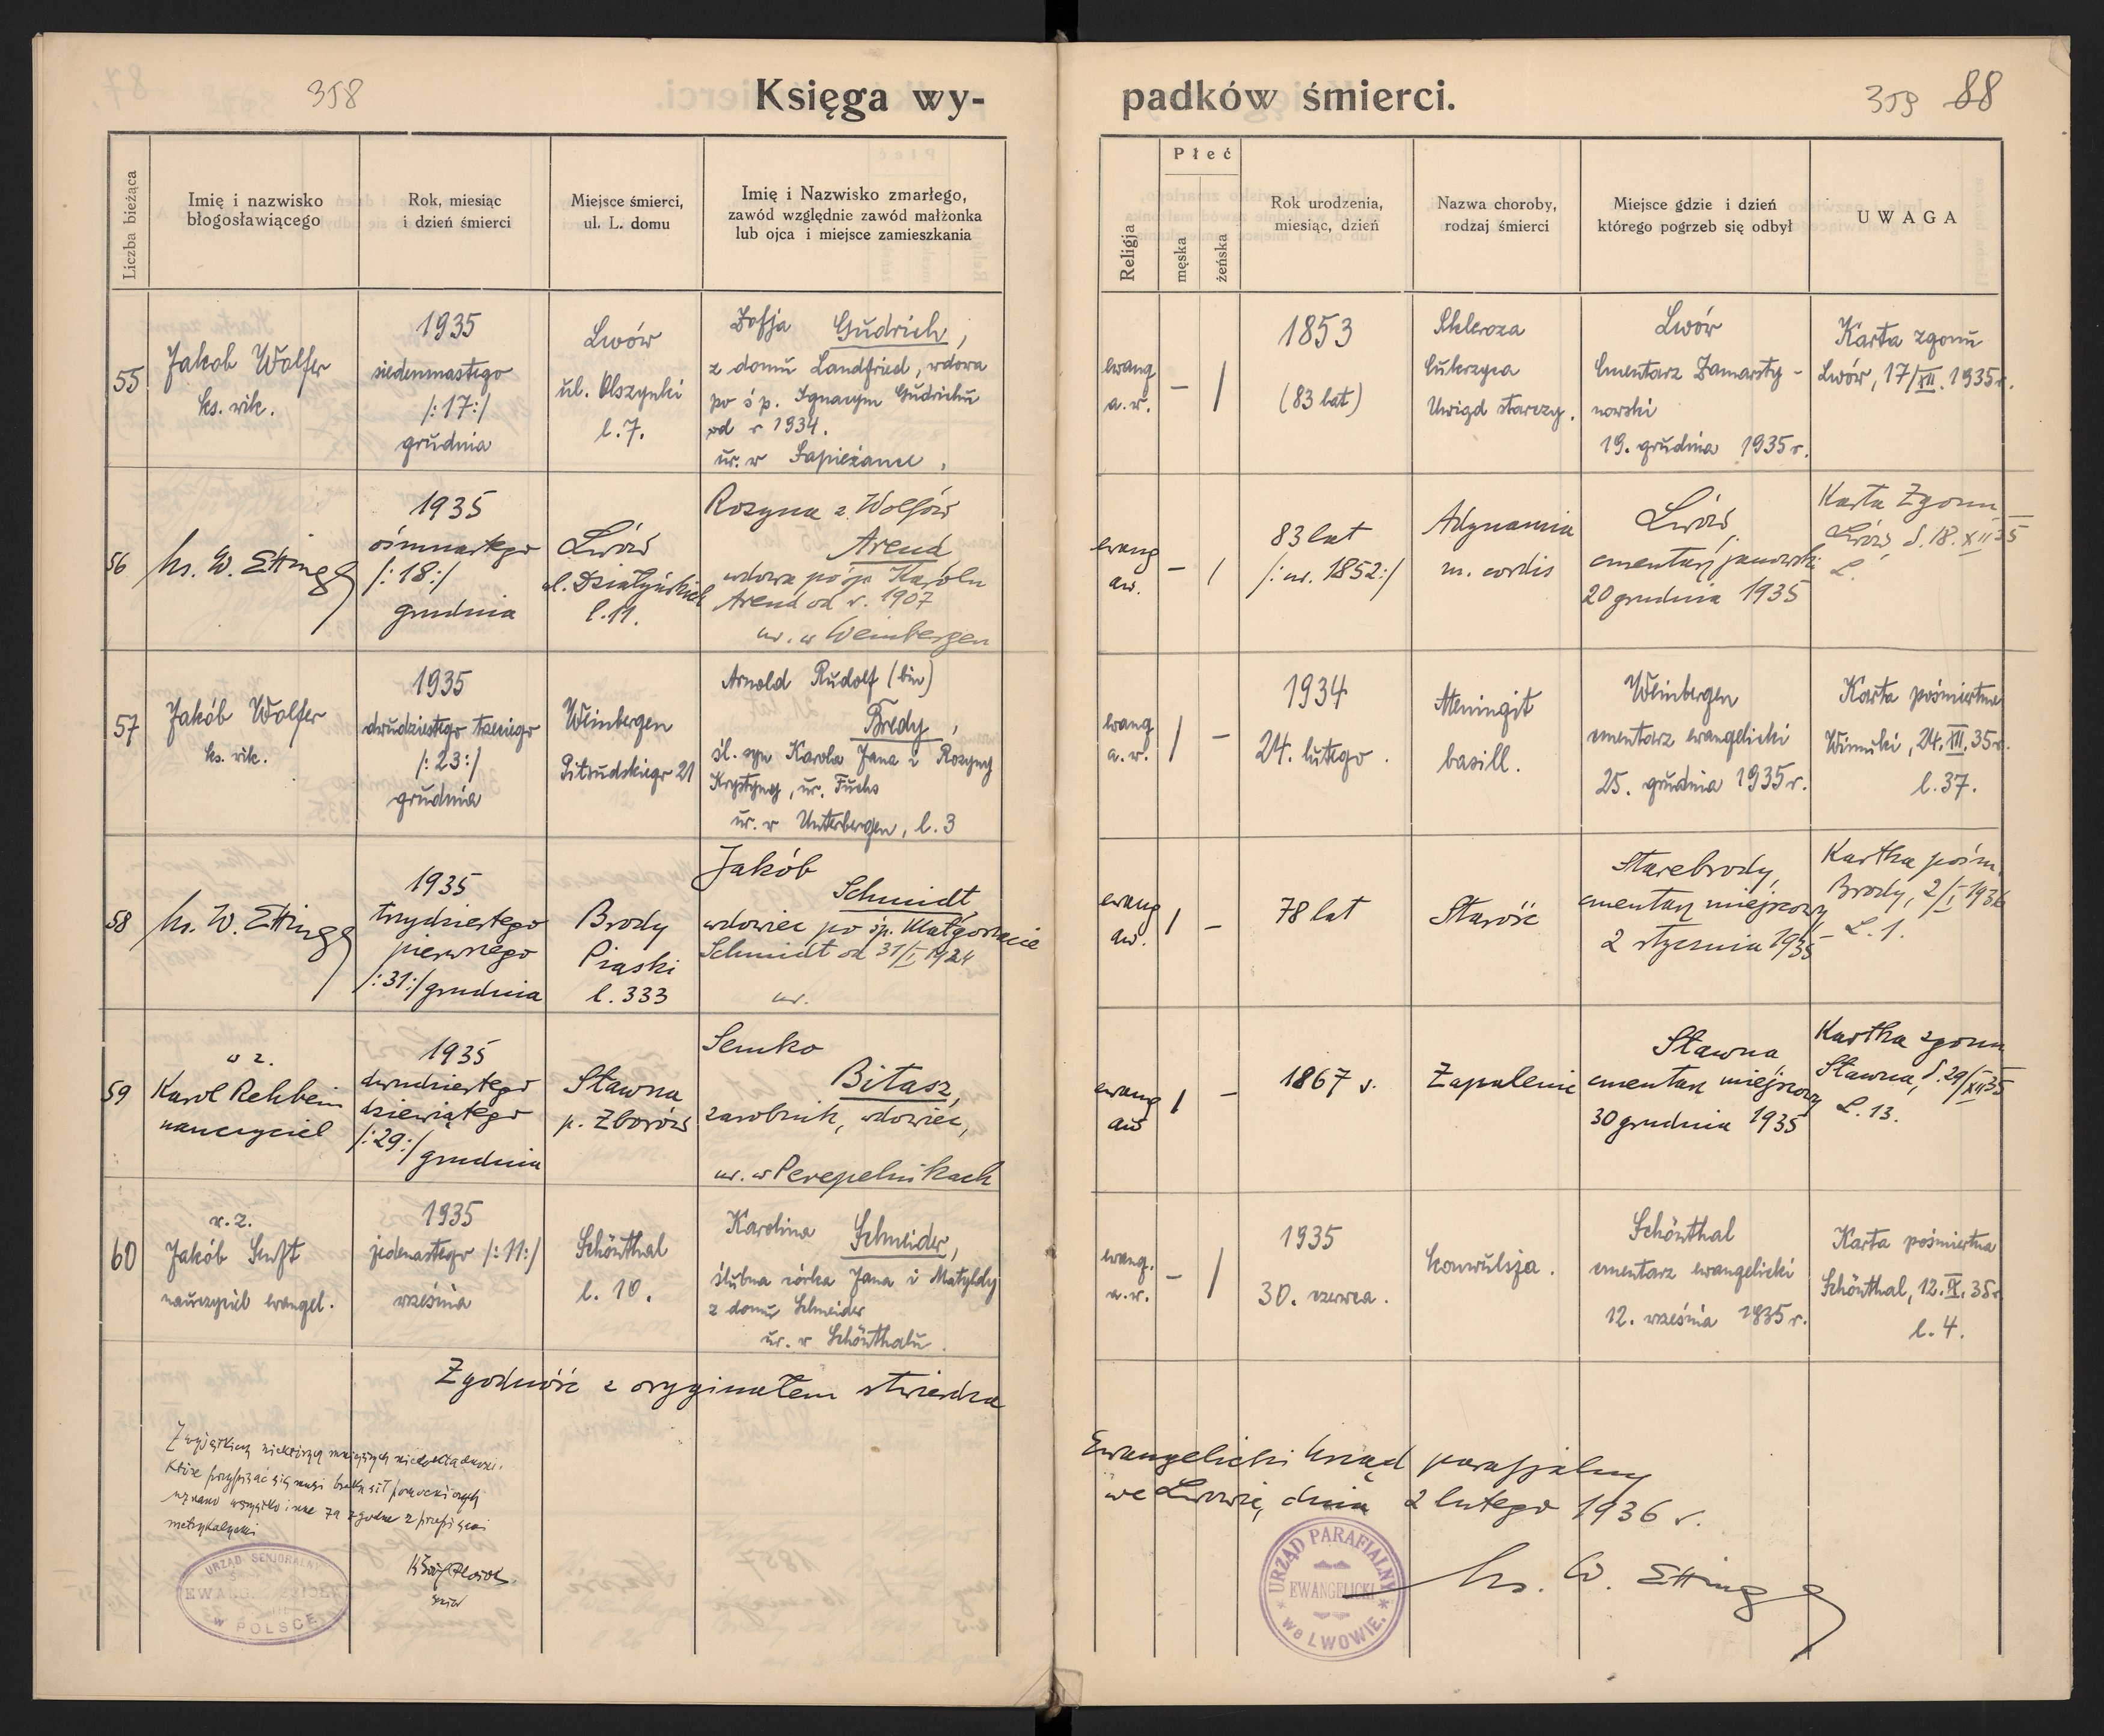 358
Księga wy-
padków śmierci.
359 88
Liczba bieżąca
Imię i nazwisko
błogosławiącego
Rok, miesiąc
i dzień śmierci
Miejsce śmierci,
ul. L. domu
Imię i Nazwisko zmarłego,
zawód względnie zawód małżonka
lub ojca i miejsce zamieszkania
Religja
Płeć
męska
żeńska
Rok urodzenia,
miesiąc, dzień
Nazwa choroby,
rodzaj śmierci
Miejsce gdzie i dzień
którego pogrzeb się odbył
UWAGA
55
Jakob Wolfer
ks. wik.
1935
siedemnastego
/:17:/
grudnia
Lwów
ul. Olszynki
l. 7.
Zofja Gudrich,
z domu Landfried, wdowa
po ś p. Ignacym Gudrichu
od r 1934.
ur. w Sapieżance,
ewang
a. w.
– /
1853
(83 lat)
Skleroza
Cukrzyca
Uwiąd starczy.
Lwów
Cmentarz Zamarsty-
nowski
19. grudnia 1935 r.
Karta zgonu
Lwów, 17/XII. 1935 r.
56
ks. W. Ettinger
1935
ośmnastego
/:18:/
grudnia
Lwów
ul. Działyńskich
l. 11.
Rozyna z Wolfów
Arend
wdowa po śp Karolu
Arend od r. 1907
ur. w Weinbergen
ewang
aw.
– /
83 lat
/: ur. 1852:/
Adynamia
m. cordis
Lwów,
cmentarz janowski
20 grudnia 1935
Karta Zgonu
Lwów d. 18. XII 35
L.
57
Jakób Wolfer
ks. wik.
1935
dwudziestego trzeciego
/:23:/
grudnia
Weinbergen
Piłsudskiego 21
Arnold Rudolf (bin)
Bredy,
śl. syn Karola Jana i Rozyny
Krystyny, ur. Fuchs
ur. w Unterbergen, l. 3
ewang
a. w.
/ –
1934
24. lutego.
Meningit
basill.
Weinbergen
cmentarz ewangelicki
25. grudnia 1935 r.
Karta pośmiertna
Winniki, 24. XII. 35 r.
l. 37.
58
ks. W. Ettinger
1935
trzydziestego
pierwszego
/:31:/ grudnia
Brody
Piaski
l. 333
Jakób
Schmidt
wdowiec po śp. Małgorzacie
Schmidt od 31/I 1924
ur.
ewang
aw.
/ –
78 lat
Starość
Starebrody,
cmentarz miejscowy
2 stycznia 1935
Kartka pośm.
Brody, 2/I 1936
L. 1.
59
w z.
Karol Rehbein
nauczyciel
1935
dwudziestego
dziewiątego
/:29:/ grudnia
Sławna
p. Zborów
Semko
Bitasz,
zarobnik, wdowiec,
ur. w Perepelnikach
ewang
aw
/ –
1867 r.
Zapalenie
Sławna
cmentarz miejscowy
30 grudnia 1935
Kartka zgonu
Sławna, d. 29/XII 35
L. 13.
60
w. z.
Jakób Senft
nauczyciel ewangel.
1935
jedenastego /:11:/
września
Schönthal
l. 10.
Karolina Schneider,
ślubna córka Jana i Matyldy
z domu Schneider
ur. w Schönthalu.
ewang.
a. w.
– /
1935
30. czerwca.
Konwulsja.
Schönthal
cmentarz ewangelicki
12. września 1935 r.
Karta pośmiertna
Schönthal, 12. IX. 35 r.
l. 4.
Zgodność z oryginałem stwierdza
Ewangelicki Urząd parafjalny
we Lwowie, dnia 2 lutego 1936 r.
ks. W. Ettinger
Z wyjątkiem niektórych mniejszych niedokładności,
które przypisać się musi
uznano wszystko inne za zgodne z przepisami
metrykalnymi
URZĄD SENJORALNY
EWANG.
W POLSCE
URZĄD PARAFIALNY
EWANGELICKI
We LWOWIE.